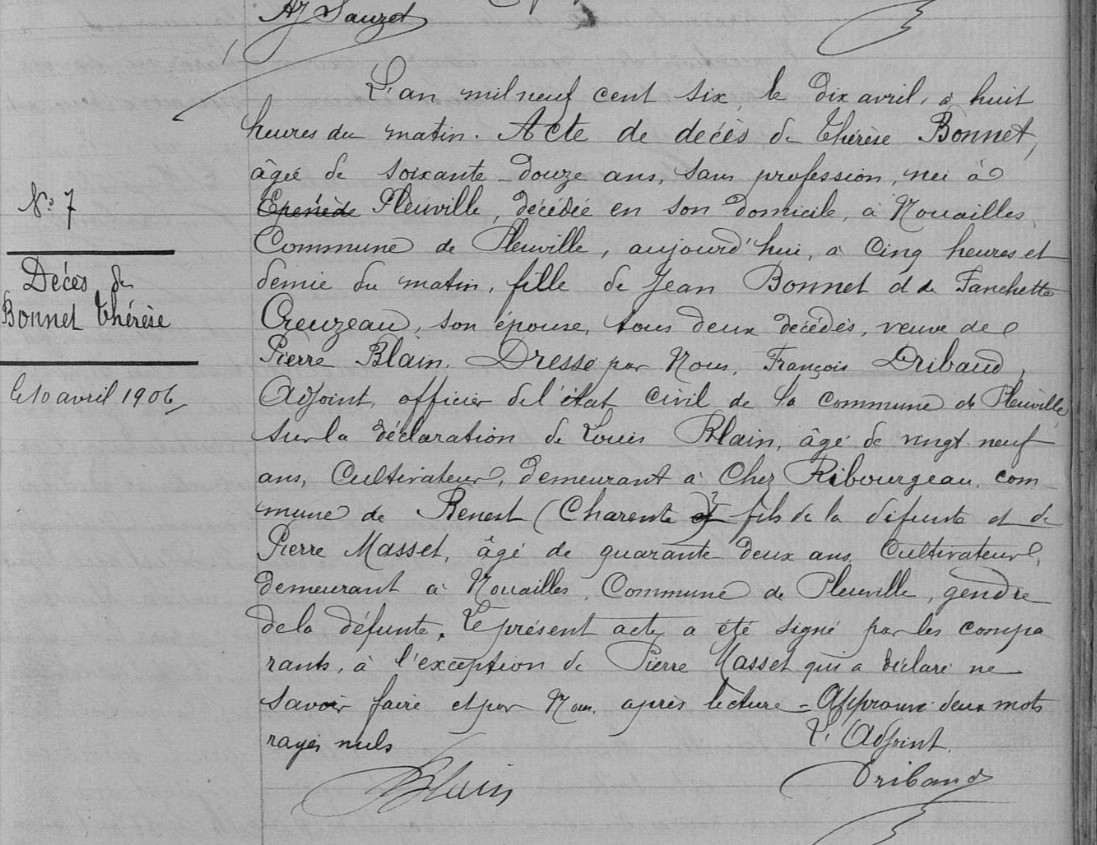 AJ Sauzet
L'an mil neuf cent six, le dix avril, à huit
heures du matin. Acte de décès de Thérèse Bonnet,
âgée de soixante-douze ans, sans profession, née à
N° 7
Pleuville, décédée en son domicile, à Nouailles,
Commune de Pleuville, aujourd'hui, à cinq heures et
Décés de
demie du matin, fille de Jean Bonnet et de Fanchette
Bonnet Thérèse
Creuzeau, son épouse, tous deux décédés, veuve de
Pierre Blain. Dressé par Nous, François Dribaud,
le 10 avril 1906
Adjoint, officier de l'état civil de la commune de Pleuville
sur la déclaration de Louis Blain, âgé de vingt neuf
ans, Cultivateur, demeurant à Chez Ribourgeau, com
mune de Benest (Charente) fils de la défunte et de
Pierre Masset, âgé de quarante deux ans, Cultivateur,
demeurant à Nouailles, Commune de Pleuville, gendre
de la défunte. Le présent acte a été signé par les compa
rants, à l'exception de Pierre Masset qui a déclaré ne
savoir faire et par Nous, après lecture - Approuvé deux mots
rayés nuls
L'Adjoint.
Blain
Dribaud